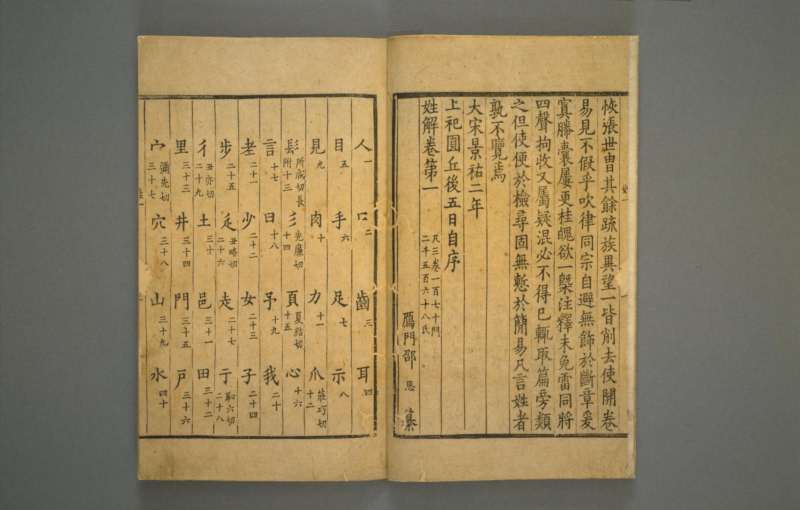 恢張世曹其餘疏族異望一皆削去使開卷
易見不假乎吹律同宗自避無飾於斷章爰
寘勝囊屢更桂魄欲一槩注釋未免雷同將
四聲拘收又屬疑混必不得已輒取篇旁類
之但使便於檢尋固無慙於簡易凡言姓者
孰不覽焉
大宋景祐二年
上祀圓丘後五日自序
姓解卷第一 凡三卷一百七十門
二千五百六十八氏
鴈門邵 思 纂
人一 口二 齒三 耳四
目五 手六 足七 示八
見九 肉十 力十一 爪莊巧切十二
髟所咸切長附十三 彡先廉切十四 頁夏結切十五 心十六
言十七 曰十八 予十九 我二十
老二十一 少二十二 女二十三 子二十四
步二十五 辵丑略切二十六 走二十七 亍恥六切二十八
彳丑亦切二十九 土三十 邑三十一 田三十二
里三十三 井三十四 門三十五 戶三十六
宀彌先切三十七 穴三十八 山三十九 水四十